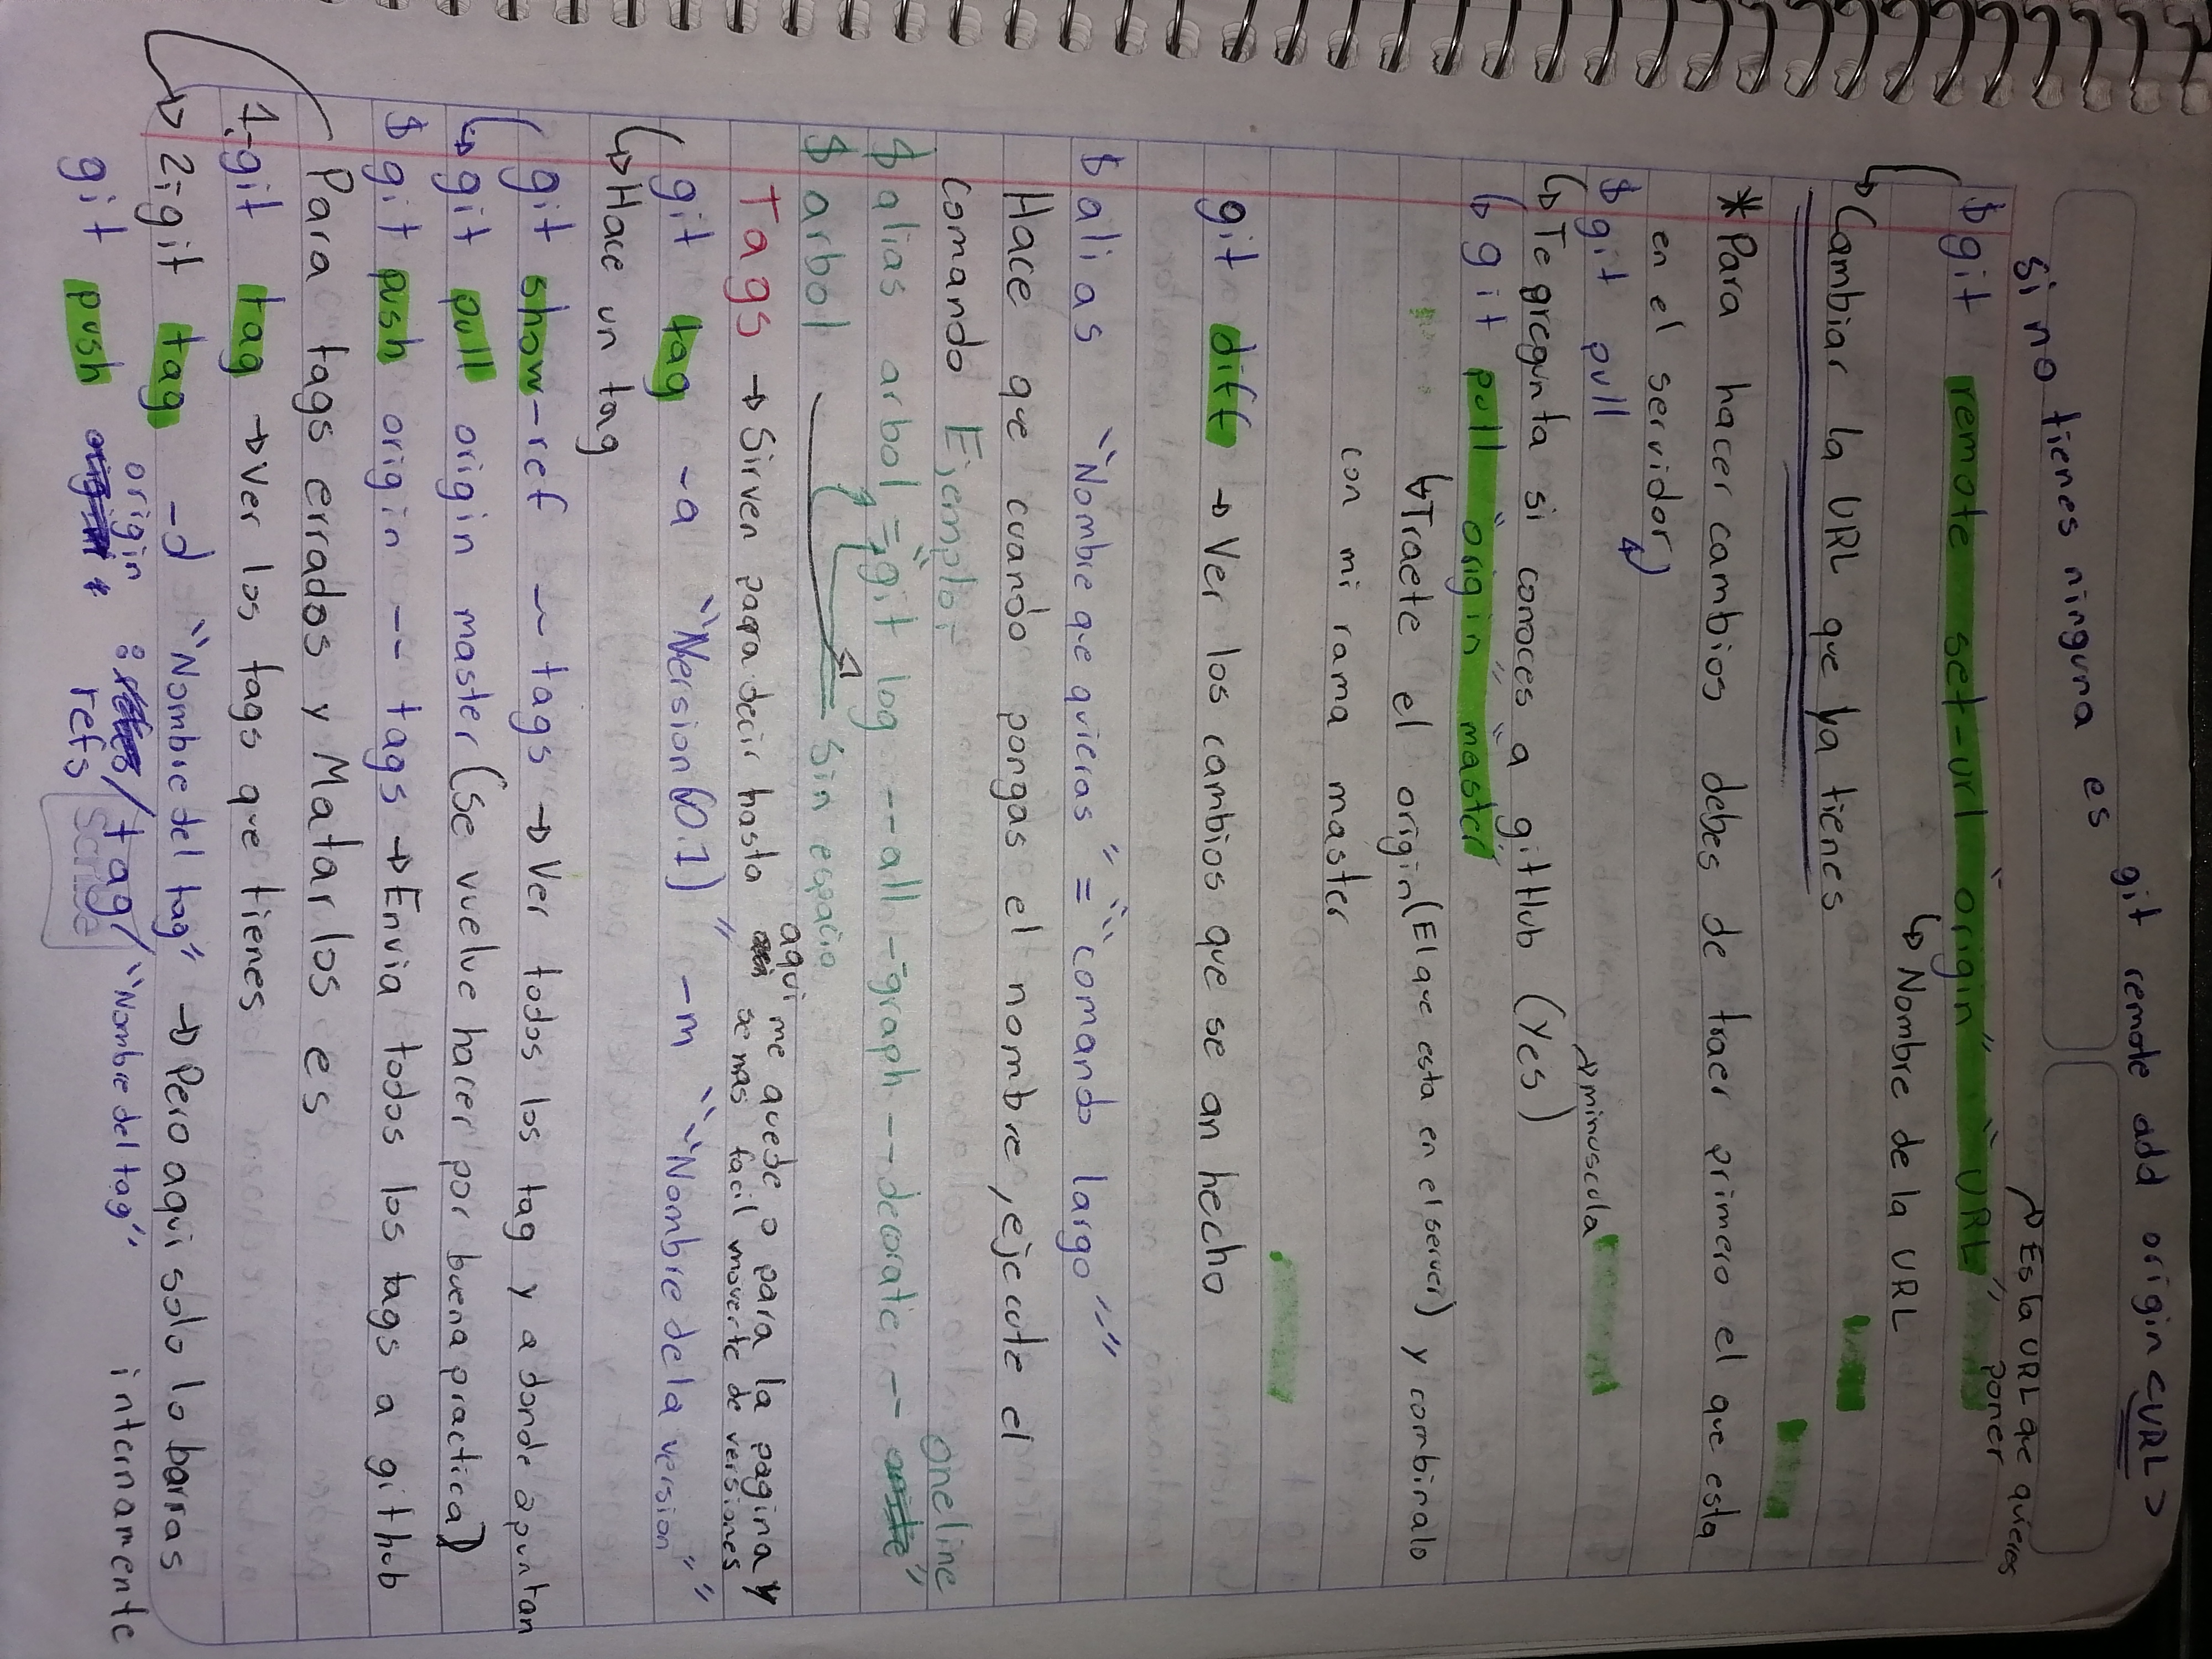 git remote add origin <URL>
si no tienes ninguna es
Es la URL que quieres
poner
$ git remote set-url "origin" "URL"
Nombre de la URL
Cambiar la URL que ya tienes
*Para hacer cambios debes de traer primero el que esta
en el servidor
$ git pull
minuscula
Te pregunta si conoces a gitHub (Yes)
git pull "origin" "master"
Traete el origin (El que esta en el server) y combinalo
con mi rama master
git diff → Ver los cambios que se an hecho
$ alias "Nombre que quieras" = ""comando largo""
Hace que cuando pongas el nombre, ejecute el
comando Ejemplo:
oneline
$ alias arbol = "git log --all -graph --decorate --"
$ arbol Sin espacio
Tags → Sirven para decir hasta aqui me quede o para la pagina y
se mas facil moverte de versiones
git tag -a "Version (v0.1)" -m ""Nombre de la version""
Hace un tag
git show-ref --tags → Ver todos los tag y a donde apuntan
git pull origin master (Se vuelve hacer por buena practica)
$ git push origin --tags → Envia todos los tags a github
Para tags errados y Matarlos es
1.-git tag → Ver los tags que tienes
2:git tag -d "Nombre del tag" → Pero aqui solo lo barras
internamente
git push origin :refs/tag/"Nombre del tag"
Scribe